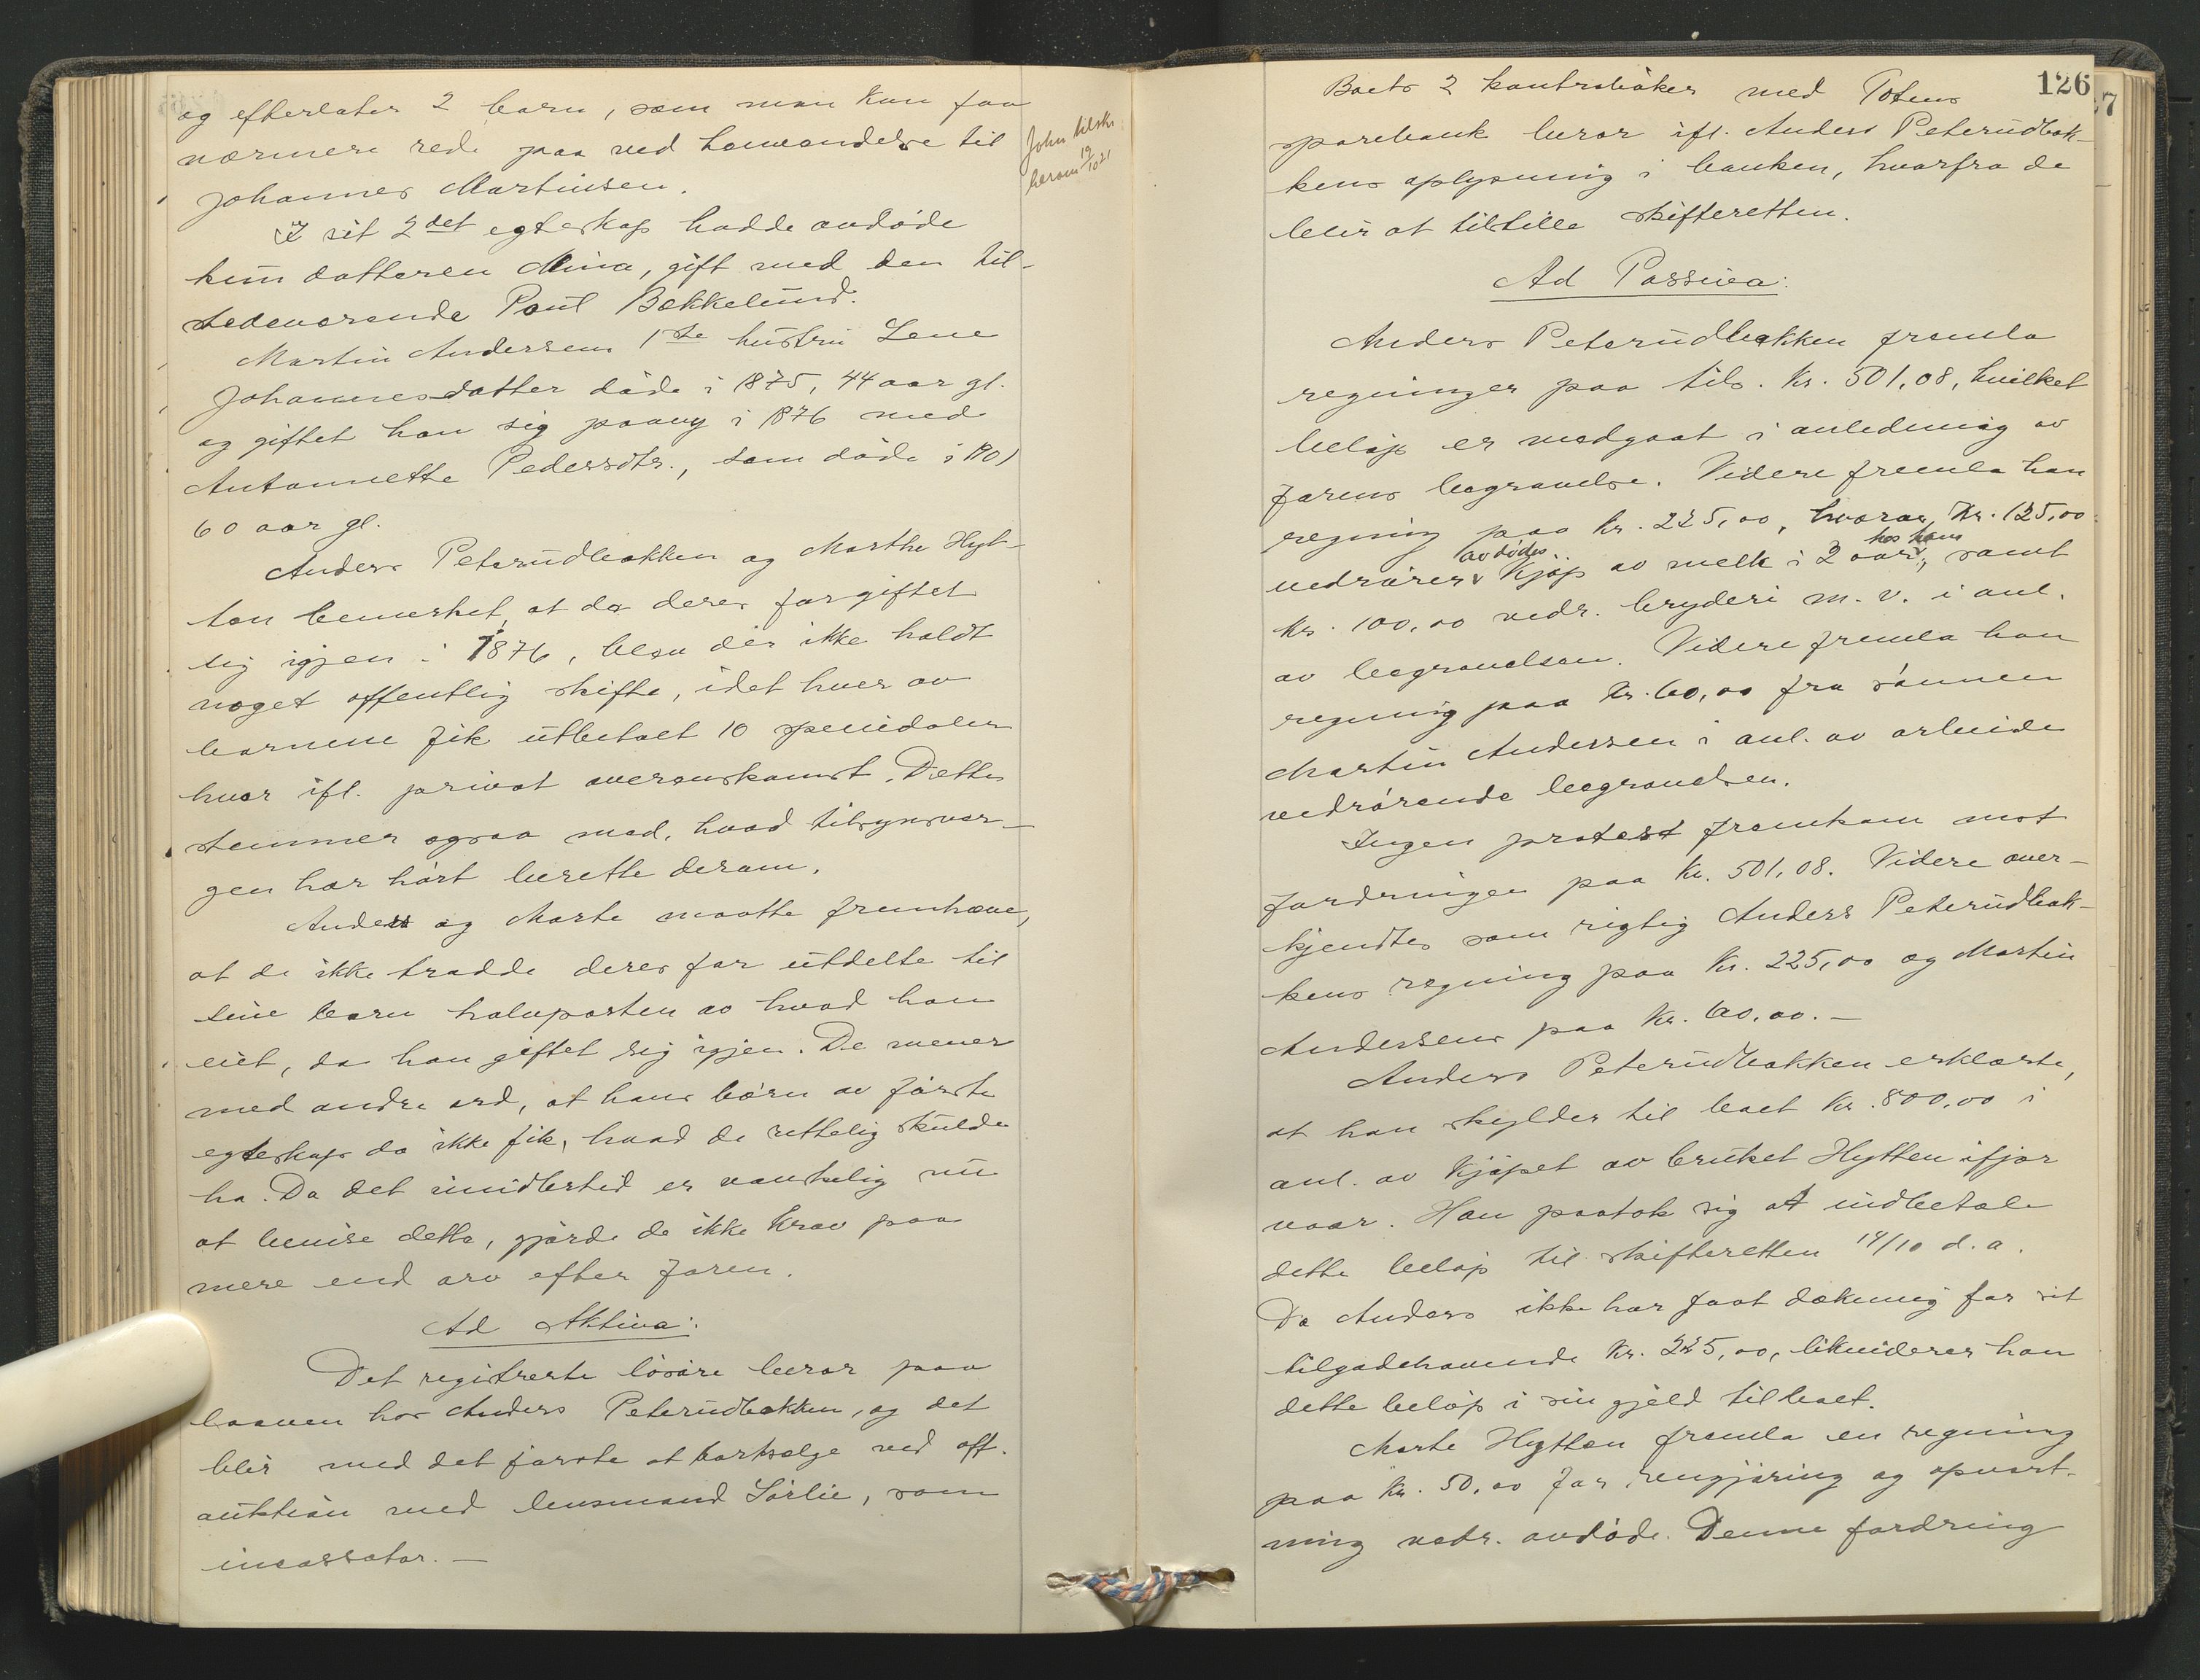 og efterlater 2 barn, som man kan faa
nærmere rede paa ved henvendelse til
Johannes Martinsen.
I sit 2det egteskap hadde avdøde
kun datteren Mina, gift med den til-
stedeværende Paul Bækkelund.
Martin Andersens 1ste hustru Lene
Johannesdatter døde i 1875, 44 aar gl.
og giftet han sig paany i 1876 med
Antonnette Pedersdtr., som døde i 1901
60 aar gl.
Anders Peterudbakken og Marthe Hyt-
ten bemerket, at da deres far giftet
sig igjen i 1876, blev der ikke holdt
noget offentlig skifte, idet hver av
barnene fik utbetalt 10 speciedaler
hver ifl. privat overenskomst. Dette
stemmer ogsaa med, hvad tilsynsvær-
gen har hørt berette derom.
Anders og Marte maatte fremhæve,
at de ikke trodde deres far utdelte til
sine barn halvparten av hvad han
eiet, da han giftet sig igjen. De mener
med andre ord, at hans børn av første
egteskap da ikke fik, hvad de rettelig skulde
ha. Da det imidlertid er vanskelig nu
at bevise dette, gjorde de ikke krav paa
mere end arv efter faren.
Ad Aktiva:
Det registrerte løsøre beror paa
laaven hos Anders Peterudbakken, og det
blir med det første at bortsælge ved off.
auktion med lensmand Sørlie, som
incassator. —
John tilskr.
herom 19/10 21
126
7
Boets 2 kontrabøker med Totens
sparebank beror ifl. Anders Peterudbak-
kens oplysning i banken, hvorfra de
blir at tilstille skifteretten.
Ad Passiva:
Anders Peterudbakken fremla
regninger paa tils. kr. 501,08, hvilket
beløp er medgaat i anledning av
farens begravelse. Videre fremla han
regning paa kr. 225,00, hvorav kr. 125,00
avdødes hos ham
vedrører kjøp av melk i 2 aar, samt
kr. 100,00 vedr. bryderi m. v. i anl.
av begravelsen. Videre fremla han
regning paa kr. 60,00 fra sønnen
Martin Andersen i anl. av arbeide
vedrørende begravelsen.
Ingen protest fremkom mot
fordringen paa kr. 501,08. Videre aner-
kjendtes som rigtig Anders Peterudbak-
kens regning paa kr. 225,00 og Martin
Andersens paa kr. 60,00. —
Anders Peterudbakken erklærte,
at han skylder til boet kr. 800,00 i
anl. av kjøpet av bruket Hytten ifjor
vaar. Han paatok sig at indbetale
dette beløp til skifteretten 14/10 d. a.
Da Anders ikke har faat dækning for sit
tilgodehavende kr. 225,00, likviderer han
dette beløp i sin gjæld til boet.
Marte Hytten fremla en regning
paa kr. 50,00 for rengjøring og opvart-
ning vedr. avdøde. Denne fordring